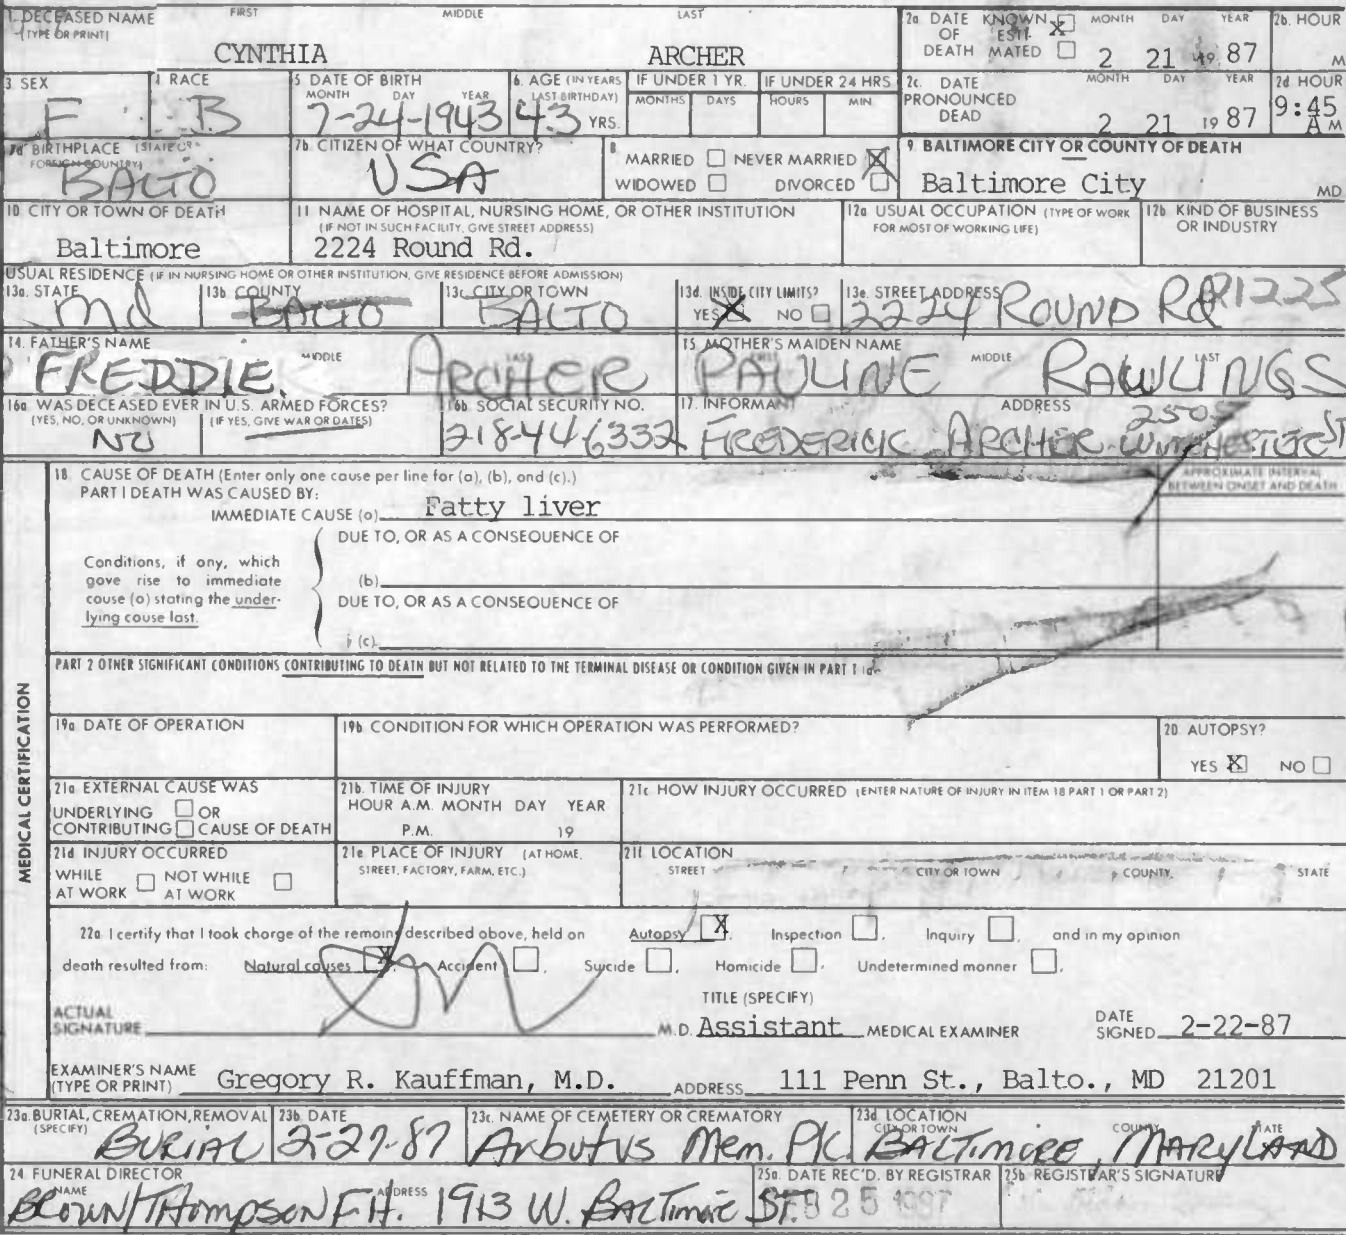 1. DECEASED NAME FIRST MIDDLE LAST
(TYPE OR PRINT)
CYNTHIA ARCHER
2a DATE OF DEATH KNOWN ☒ ESTIMATED ☐ MONTH DAY YEAR
2 21 19 87
2b. HOUR
M
3 SEX
F
4 RACE
B
5 DATE OF BIRTH
MONTH DAY YEAR
7-24-1943
6. AGE (IN YEARS LAST BIRTHDAY)
43 YRS.
IF UNDER 1 YR.
MONTHS DAYS
IF UNDER 24 HRS
HOURS MIN
2c. DATE PRONOUNCED DEAD MONTH DAY YEAR
2 21 19 87
2d HOUR
9:45 A M
7a BIRTHPLACE (STATE OR FOREIGN COUNTRY)
BALTO
7b CITIZEN OF WHAT COUNTRY?
USA
8
MARRIED ☐ NEVER MARRIED ☒
WIDOWED ☐ DIVORCED ☐
9 BALTIMORE CITY OR COUNTY OF DEATH
Baltimore City MD
10 CITY OR TOWN OF DEATH
Baltimore
11 NAME OF HOSPITAL, NURSING HOME, OR OTHER INSTITUTION
(IF NOT IN SUCH FACILITY, GIVE STREET ADDRESS)
2224 Round Rd.
12a USUAL OCCUPATION (TYPE OF WORK
FOR MOST OF WORKING LIFE)
12b KIND OF BUSINESS
OR INDUSTRY
USUAL RESIDENCE (IF IN NURSING HOME OR OTHER INSTITUTION, GIVE RESIDENCE BEFORE ADMISSION)
13a. STATE
Md
13b COUNTY
BALTO
13c CITY OR TOWN
BALTO
13d. INSIDE CITY LIMITS?
YES ☒ NO ☐
13e. STREET ADDRESS
2224 ROUND Rd 21225
14. FATHER'S NAME MIDDLE LAST
FREDDIE ARCHER
15 MOTHER'S MAIDEN NAME MIDDLE LAST
PAULINE RAWLINGS
16a WAS DECEASED EVER IN U.S. ARMED FORCES?
(YES, NO, OR UNKNOWN) (IF YES, GIVE WAR OR DATES)
NO
16b SOCIAL SECURITY NO.
218-44-6332
17. INFORMANT ADDRESS
FREDERICK ARCHER 2505 WINCHESTER ST
MEDICAL CERTIFICATION
18. CAUSE OF DEATH (Enter only one cause per line for (a), (b), and (c).)
PART I DEATH WAS CAUSED BY:
APPROXIMATE INTERVAL
BETWEEN ONSET AND DEATH
IMMEDIATE CAUSE (a) Fatty liver
DUE TO, OR AS A CONSEQUENCE OF
Conditions, if any, which
gave rise to immediate
cause (a) stating the under-
lying cause last.
(b)
DUE TO, OR AS A CONSEQUENCE OF
(c)
PART 2 OTHER SIGNIFICANT CONDITIONS CONTRIBUTING TO DEATH BUT NOT RELATED TO THE TERMINAL DISEASE OR CONDITION GIVEN IN PART I (a)
19a DATE OF OPERATION
19b CONDITION FOR WHICH OPERATION WAS PERFORMED?
20 AUTOPSY?
YES ☒ NO ☐
21a EXTERNAL CAUSE WAS
UNDERLYING ☐ OR
CONTRIBUTING ☐ CAUSE OF DEATH
21b. TIME OF INJURY
HOUR A.M. MONTH DAY YEAR
P.M. 19
21c HOW INJURY OCCURRED (ENTER NATURE OF INJURY IN ITEM 18 PART 1 OR PART 2)
21d INJURY OCCURRED
WHILE AT WORK ☐ NOT WHILE AT WORK ☐
21e PLACE OF INJURY (AT HOME,
STREET, FACTORY, FARM, ETC.)
21f LOCATION
STREET CITY OR TOWN COUNTY STATE
22a I certify that I took charge of the remains described above, held on Autopsy ☒, Inspection ☐, Inquiry ☐, and in my opinion
death resulted from: Natural causes ☒, Accident ☐, Suicide ☐, Homicide ☐, Undetermined manner ☐.
ACTUAL
SIGNATURE M.D.
TITLE (SPECIFY)
Assistant MEDICAL EXAMINER
DATE
SIGNED 2-22-87
EXAMINER'S NAME
(TYPE OR PRINT) Gregory R. Kauffman, M.D. ADDRESS 111 Penn St., Balto., MD 21201
23a. BURIAL, CREMATION, REMOVAL
(SPECIFY)
BURIAL
23b. DATE
2-27-87
23c. NAME OF CEMETERY OR CREMATORY
Arbutus Mem. Pk.
23d LOCATION
CITY OR TOWN COUNTY STATE
BALTIMORE, MARYLAND
24 FUNERAL DIRECTOR
NAME ADDRESS
BROWN/THOMPSON F.H. 1913 W. BALTIMORE ST.
25a. DATE REC'D. BY REGISTRAR
FEB 25 1987
25b. REGISTRAR'S SIGNATURE